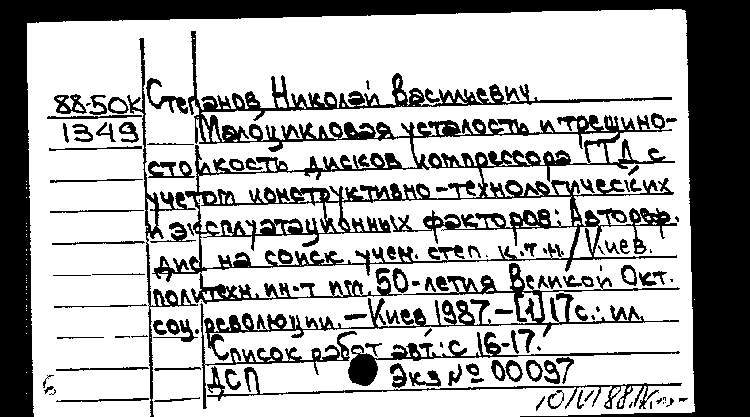 88-50К Степанов Николай Васильевич.
1349 Малоцикловая усталость и трещино-
стойкость дисков компрессора ГТД с
учетом конструктивно-технологических
и эксплуатационных факторов: Автореф.
дис на соиск. учен. степ. к.т.н./Киев.
политехн. ин-т им. 50-летия Великой Окт.
соц. революции. —Киев 1987.—[1] 17 с.: ил.
Список работ авт.: с 16-17.
ДСП Экз № 00097
б